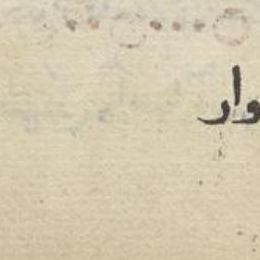 وار